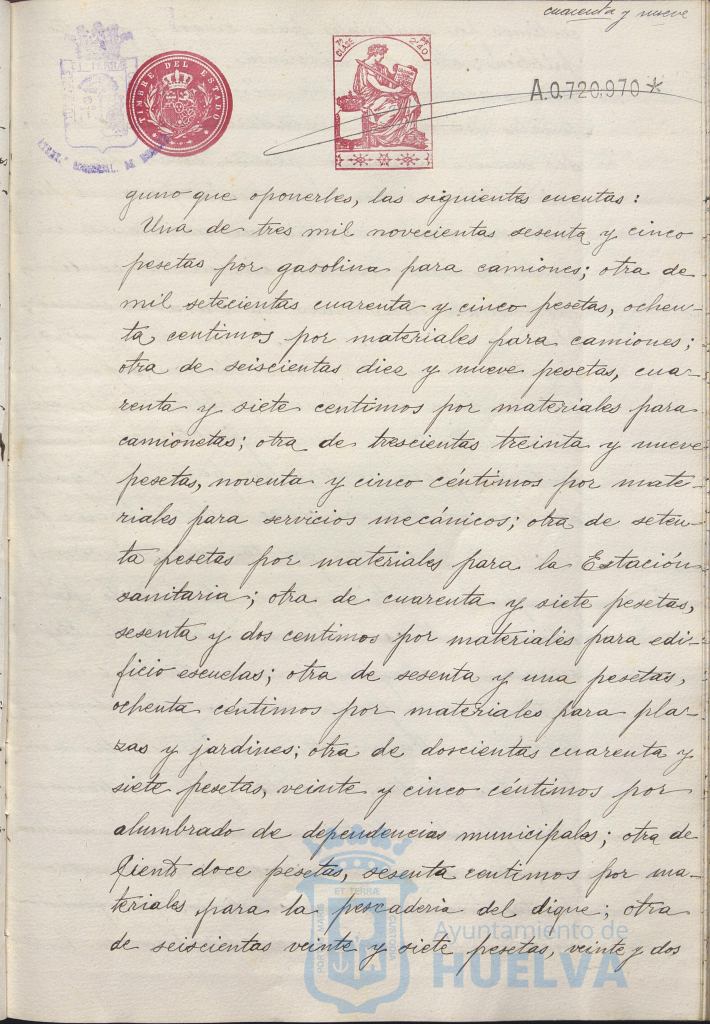 cuarenta y nueve
TIMBRE DEL ESTADO
7ª CLASE
2'40
A.0.720.970*
guno que oponerles, las siguientes cuentas:
Una de tres mil novecientas sesenta y cinco
pesetas por gasolina para camiones; otra de
mil setecientas cuarenta y cinco pesetas, ochen-
ta, centimos por materiales para camiones;
otra de seiscientas diez y nueve pesetas, cua-
renta y siete centimos por materiales para
camionetas; otra de trescientas treinta y nueve
pesetas, noventa y cinco céntimos por mate-
riales para servicios mecánicos; otra de seten-
ta pesetas por materiales para la Estación
sanitaria; otra de cuarenta y siete pesetas,
sesenta y dos centimos por materiales para edi-
ficio escuelas; otra de sesenta y una pesetas,
ochenta céntimos por materiales para pla-
zas y jardines; otra de doscientas cuarenta y
siete pesetas, veinte y cinco céntimos por
alumbrado de dependencias municipales; otra de
ciento doce pesetas, sesenta centimos por ma-
teriales para la pescaderia del dique; otra
de seiscientas veinte y siete pesetas, veinte y dos
ET TERRA
PORTUS MARIS
Ayuntamiento de
HUELVA